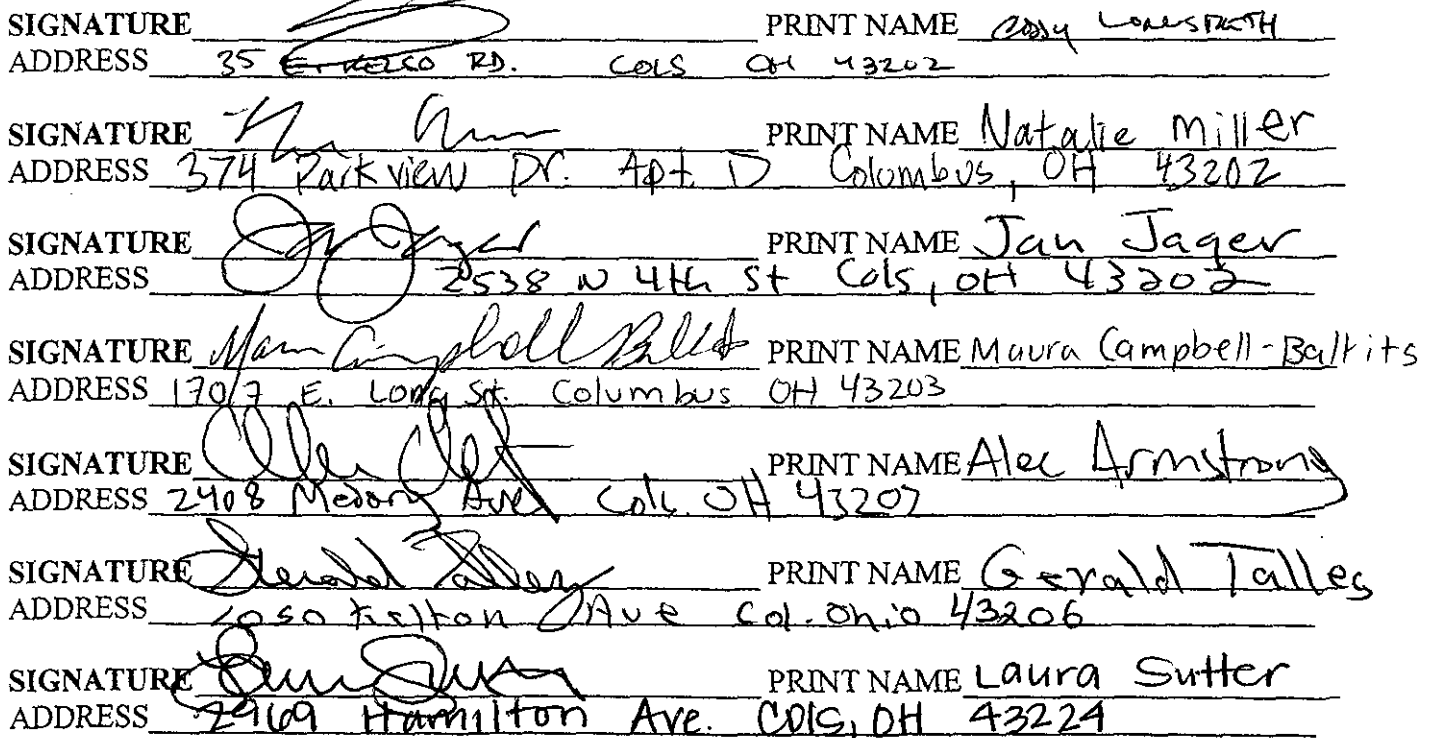 SIGNATURE PRINT NAME
ADDRESS 35 RD. COLS OH 43202
SIGNATURE PRINT NAME Natalie Miller
ADDRESS 374 Parkview Dr. Apt. D Columbus, OH 43202
SIGNATURE PRINT NAME Jan Jager
ADDRESS 2538 N 4th St Cols, OH 43202
SIGNATURE PRINT NAME Maura Campbell-Baltits
ADDRESS 1707 E. Long St. Columbus OH 43203
SIGNATURE PRINT NAME Alec Armstrong
ADDRESS 2408 Medary Ave Cols. OH 43202
SIGNATURE Gerald Talley PRINT NAME Gerald Talley
ADDRESS Kelton Ave Col. Ohio 43206
SIGNATURE PRINT NAME Laura Sutter
ADDRESS 2969 Hamilton Ave. COLS, OH 43224